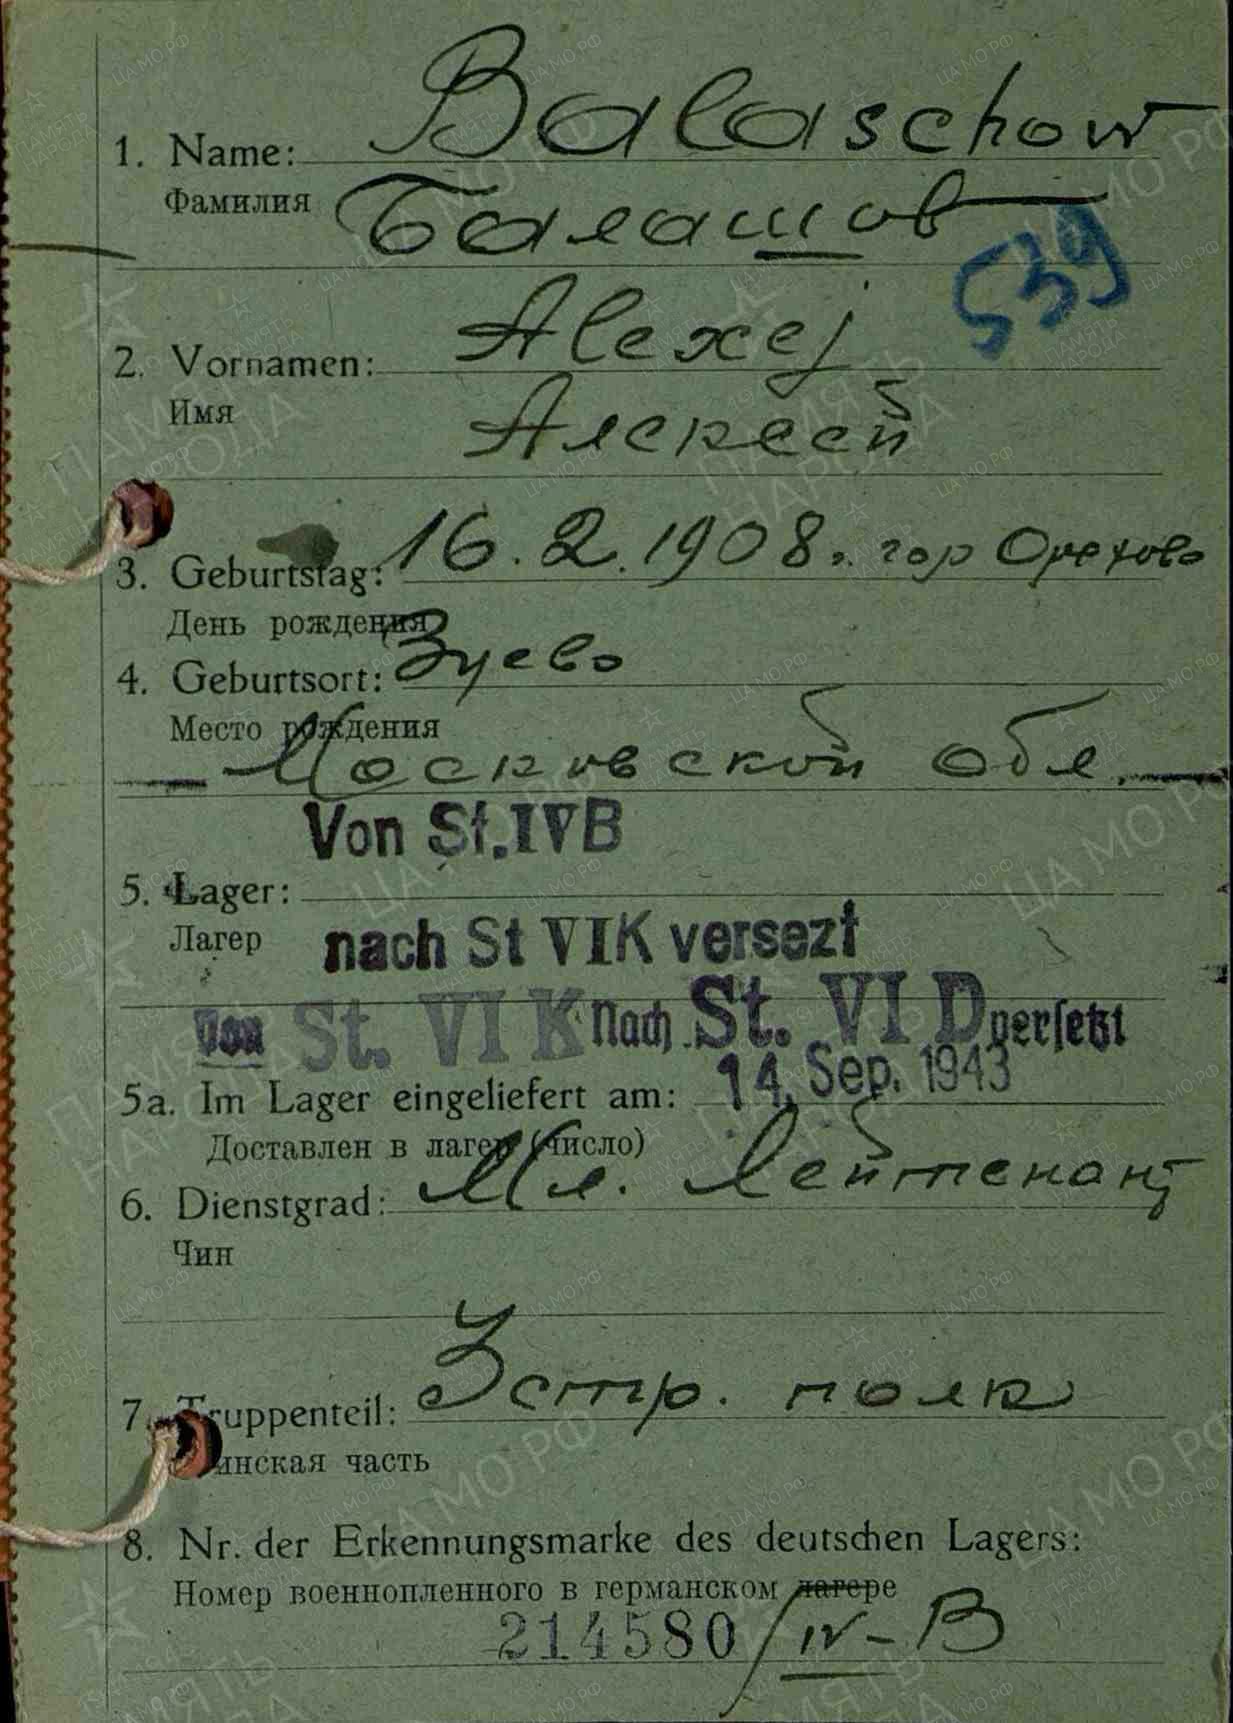 1. Name: Balaschow
Фамилия Балашов
539
2. Vornamen: Alexej
Имя Алексей
3. Geburtstag: 16.2.1908. гор Орехово
День рождения
4. Geburtsort: Зуево
Место рождения
Московской обл.
Von St. IV B
5. Lager:
Лагер nach St VI K versezt
Von St. VI K Nach St. VI D versetzt
5a. Im Lager eingeliefert am: 14. Sep. 1943
Доставлен в лагер (число)
6. Dienstgrad: Мл. Лейтенант
Чин
7. Truppenteil: стр. полк
инская часть
8. Nr. der Erkennungsmarke des deutschen Lagers:
Номер военнопленного в германском лагере
214580/IV-B